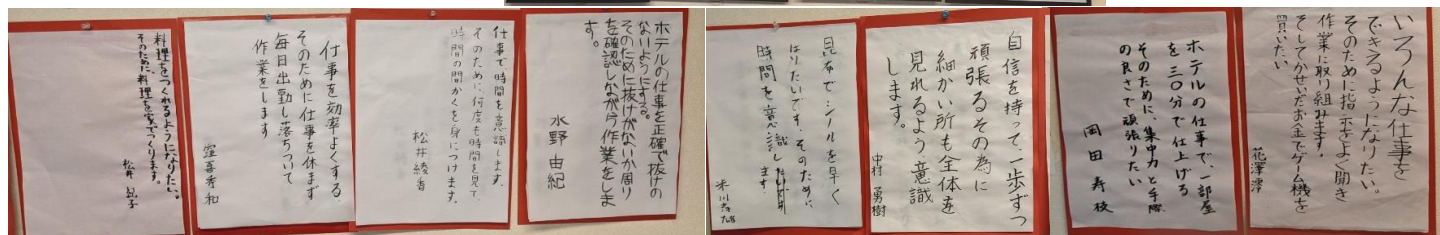 料理をつくれるようになりたい。
そのために料理を家でつくります。
松井
仕事を効率よくする
そのために仕事を休まず
毎日出勤し落ちついて
作業をします
窪喜秀和
仕事で時間を意識します。
そのために、何度も時間を見て、
時間の間かくを身につけます。
松井綾香
ホテルの仕事を正確で抜けの
ないようにする。
そのために抜けがないか周り
を確認しながら作業をしま
す。
水野由紀
自信を持って、一歩ずつ
頑張るその為に
細かい所も全体を
見れるよう意識
します。
中村勇樹
早く
はりたいです。そのために
時間を意識し
ます。
米川
ホテルの仕事で、一部屋
を三〇分で仕上げる
そのために、集中力と手際
の良さで頑張りたい
岡田寿枝
いろんな仕事を
できるようになりたい。
そのために指示をよく聞き
作業に取り組みます。
そしてかせいだお金でゲーム機を
買いたい
花澤